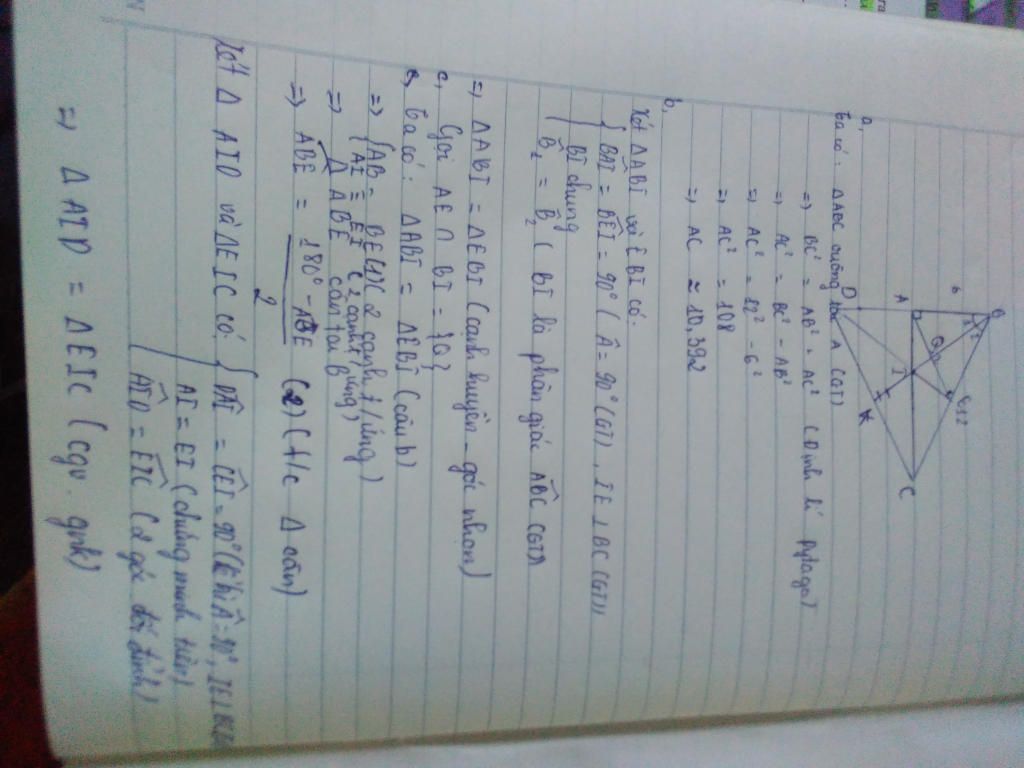 B
6
A
D
I
E
12
K
C
a,
Ta có: ΔABC vuông tại A (GT)
=> BC² = AB² + AC² (Định lí Pytago)
=> AC² = BC² - AB²
=> AC² = 12² - 6²
=> AC² = 108
=> AC ≈ 10,392
b,
Xét ΔABI và EBI có:
BAI = BEI = 90° (Â = 90° (GT), IE ⊥ BC (GT))
BI chung
B̂₁ = B̂₂ (BI là phân giác ABC (GT))
=> ΔABI = ΔEBI (cạnh huyền - góc nhọn)
c, Gọi AE ∩ BI = {Q}
Ta có: ΔABI = ΔEBI (câu b)
=> { AB = BE (1) (2 cạnh t/ứng)
AI = EI (2 cạnh t/ứng)
=> ΔABE cân tại B
=> ABE = 180° - ABE / 2 (2) (t/c Δ cân)
Xét Δ AID và ΔEIC có: { DAI = CEI = 90° (Â = 90°, IE ⊥ BC
AI = EI (chứng minh trên)
AID = EIC (2 góc đối đỉnh)
=> Δ AID = ΔEIC (cgv. gnk)